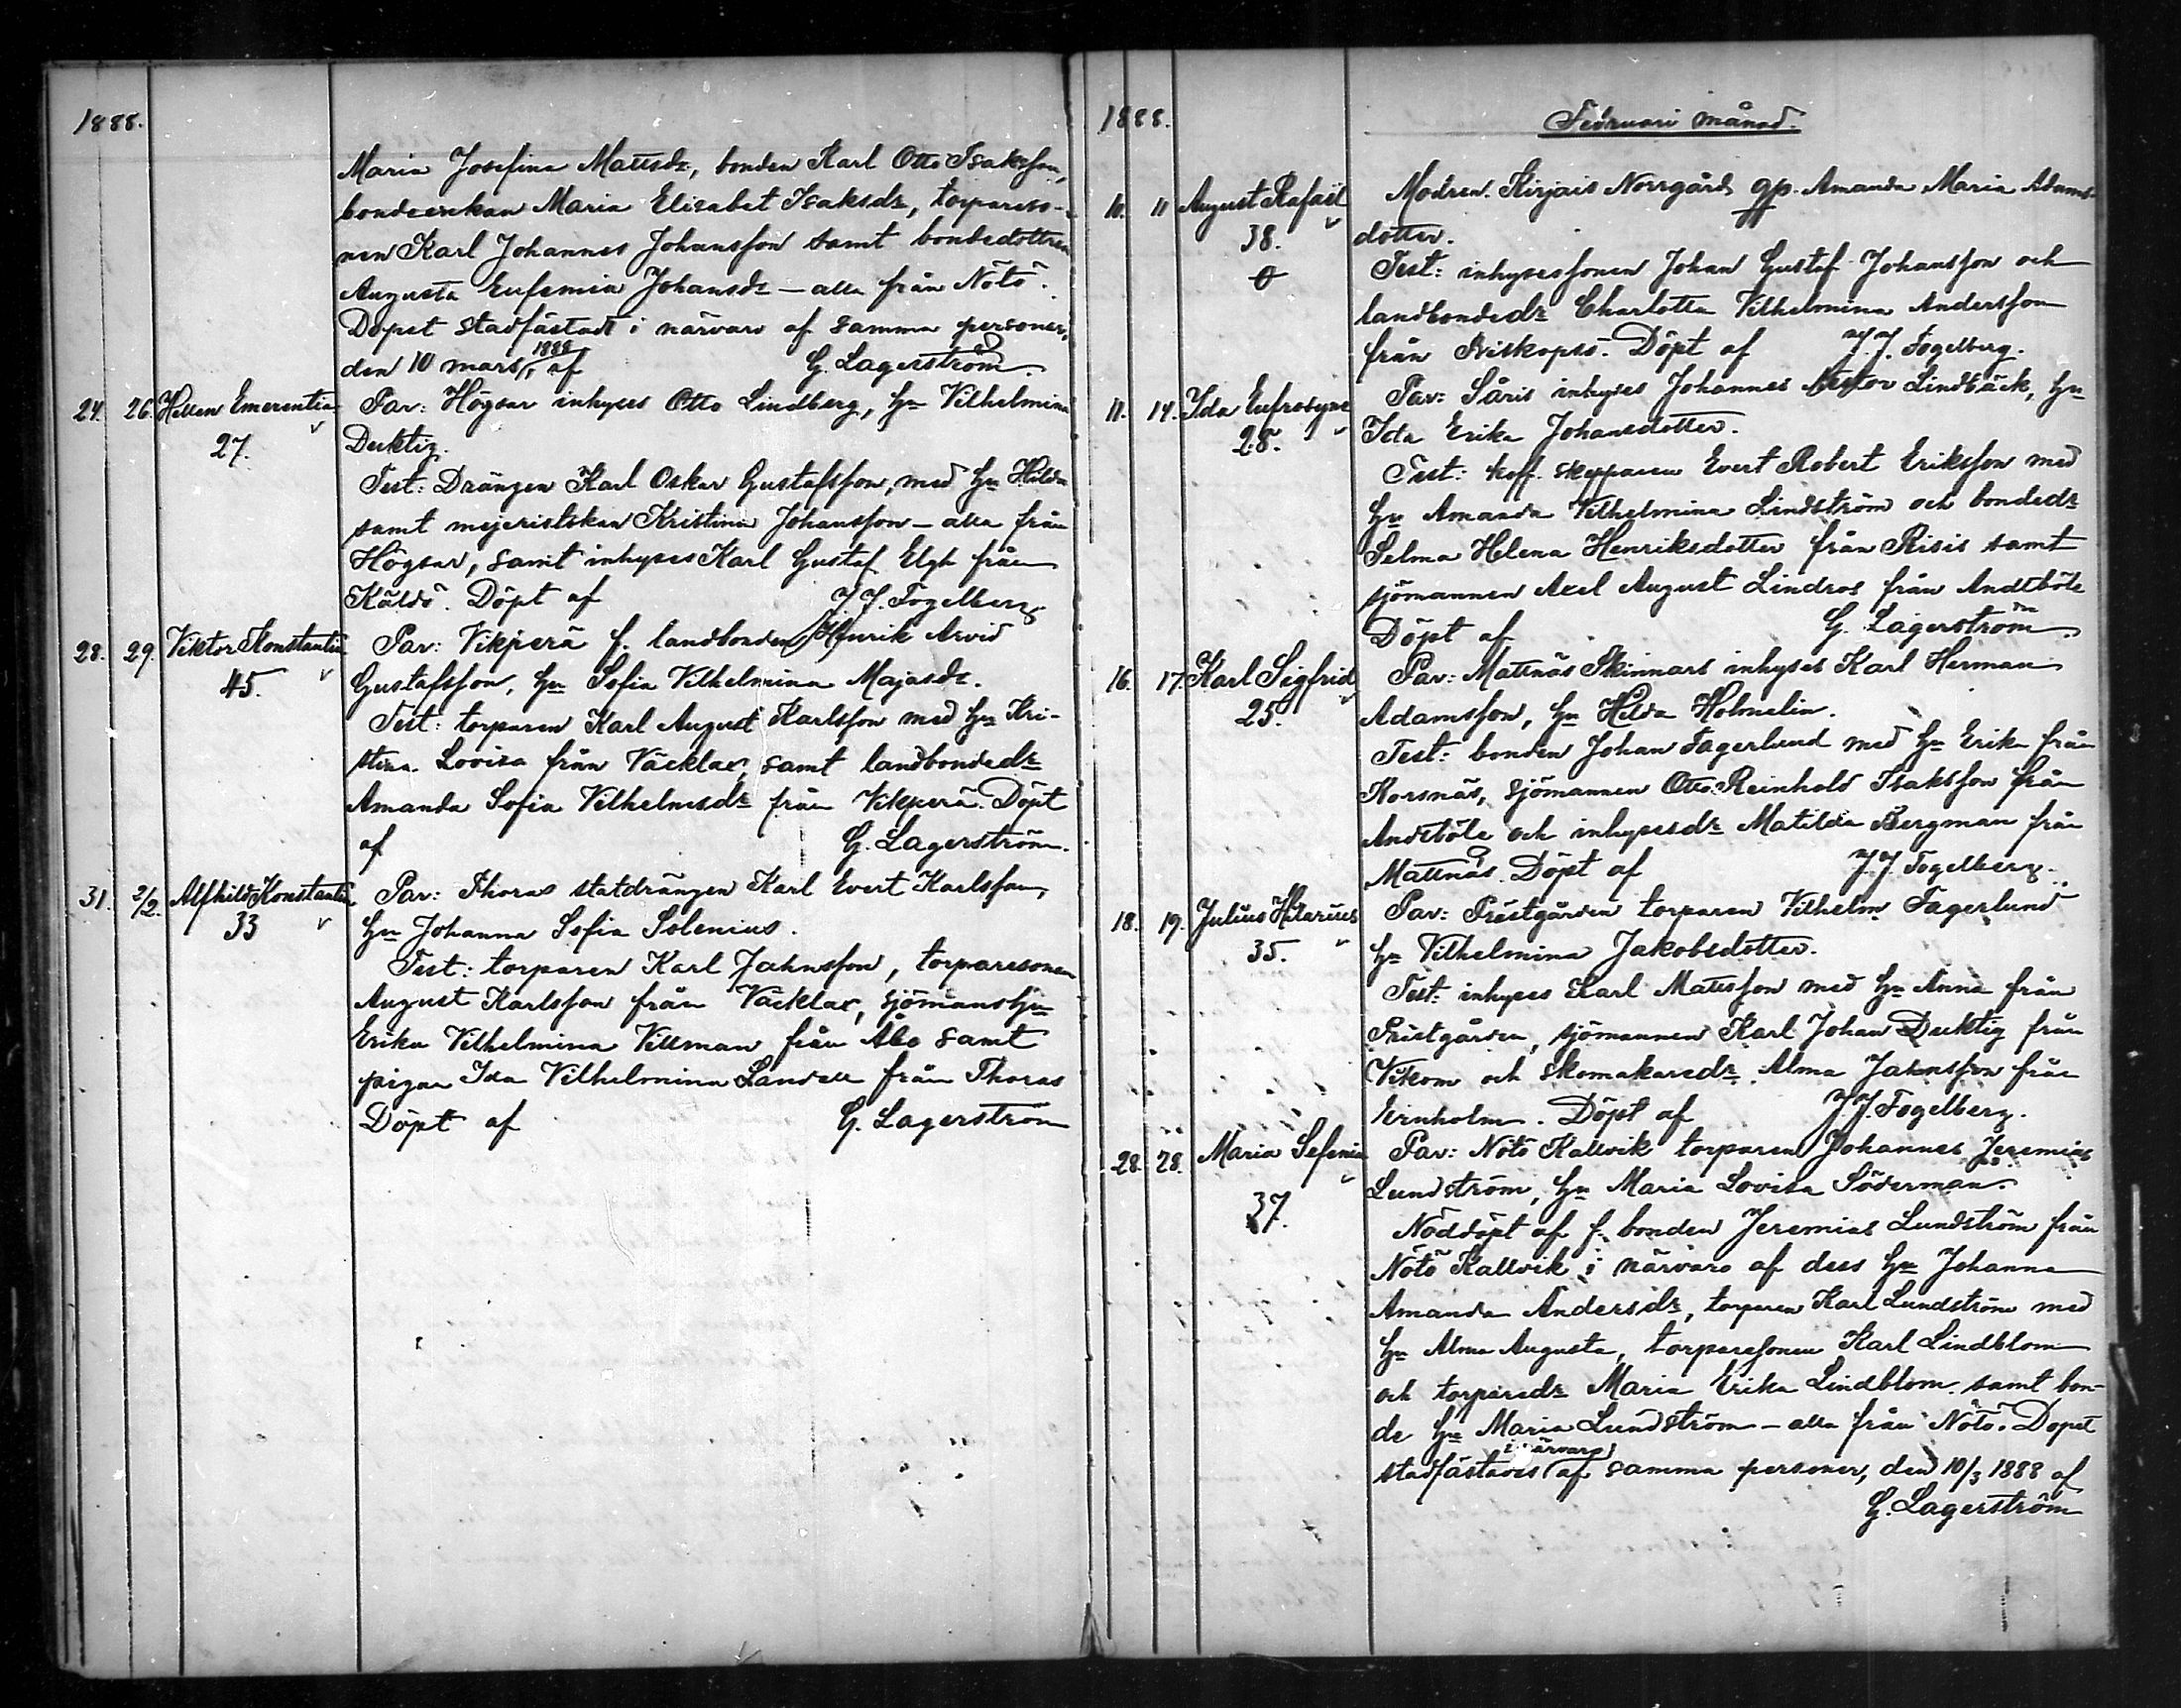 1888.
Maria Josefina Mattsdr, bonden Karl Otto Isaksson,
bondeenkan Maria Elisabet Isaksdr, torpareso-
nen Karl Johannes Johansson samt bondedottren
Augusta Eufemia Johansdr – alla från Nötö.
Dopet stadfästadt i närvaro af samma personer,
den 10 mars 1888 af G. Lagerström.
24. 26. Hellen Emerentia Par: Högsar inhyses Otto Lindberg, hu Vilhelmina
27. Duktig.
Test: Drängen Karl Oskar Gustafsson, med hu Hilda
samt mejeristskan Kristina Johansson – alla från
Högsar, samt inhyses Karl Gustaf Elgh från
Käldö. Döpt af J. J. Fogelberg
28. 29. Viktor Konstantin Par: Vikperä f. landbonden Henrik Arvid
45. Gustafsson, hu Sofia Vilhelmina Majasdr.
Test: torparen Karl August Karlsson med hu Kri-
stina Lovisa från Väcklax, samt landbondedr
Amanda Sofia Vilhelmsdr från Vikperä. Döpt
af G. Lagerström.
31. 2/2. Alfhild Konstantia Par: Thoras statdrängen Karl Evert Karlsson,
33 hu Johanna Sofia Solenius.
Test: torparen Karl Jahnsson, torparesonen
August Karlsson från Väcklax, sjömanshu
Erika Vilhelmina Villman från Åbo samt
pigan Ida Vilhelmina Landell från Thoras
Döpt af G. Lagerström
1888. Februari månad.
10. 11 August Rafaël Modren. Kirjais Norrgård gp. Amanda Maria Adams-
38. dotter.
Test: inhysessonen Johan Gustaf Johansson och
landbondedr Charlotta Vilhelmina Andersson
från Biskopsö. Döpt af J. J. Fogelberg.
11. 14. Ida Eufrosyne Par: Såris inhyses Johannes Nestor Lindbäck, hu
28. Ida Erika Johansdotter.
Test: koff. skepparen Evert Robert Eriksson med
hu Amanda Vilhelmina Lindström och bondedr
Selma Helena Henriksdotter från Risis samt
sjömannen Axel August Lindros från Andtböle
Döpt af G. Lagerström.
16. 17. Karl Sigfrid Par: Mattnäs Skinnars inhyses Karl Herman
25. Adamsson, hu Hilda Holmelin.
Test: bonden Johan Fagerlund med hu Erika från
Korsnäs, sjömannen Otto Reinhold Isaksson från
Andtböle och inhysesdr Matilda Bergman från
Mattnäs. Döpt af J. J. Fogelberg.
18. 19. Julius Hilarius Par: Prestgården torparen Vilhelm Fagerlund
35. hu Vilhelmina Jakobsdotter.
Test: inhyses Karl Mattsson med hu Anna från
Prestgården, sjömannen Karl Johan Duktig från
Vikom och skomakaredr Alma Jahnsson från
Ernholm. Döpt af J. J. Fogelberg.
28. 28. Maria Sefenia Par: Nötö Kallvik torparen Johannes Jeremias
37. Lundström, hu Maria Lovisa Söderman.
Nöddöpt af f. bonden Jeremias Lundström från
Nötö Kallvik i närvaro af dess hu Johanna
Amanda Andersdr, torparen Karl Lundström med
hu Alma Augusta, torparesonen Karl Lindblom
och torparedr Maria Erika Lindblom samt bon-
de hu Maria Lundström – alla från Nötö. Dopet
stadfästades i närvaro af samma personer, den 10/3 1888 af
G. Lagerström